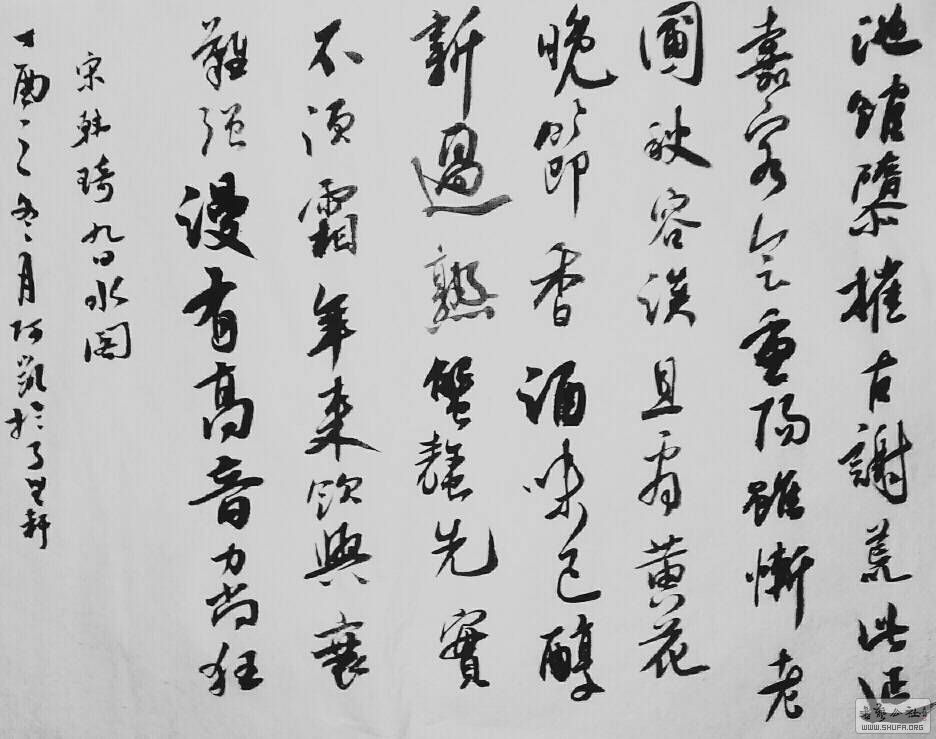 池館隳摧古謝荒此延
嘉客会重陽雖慚老
圃秋容淡且看黄花
晚節香酒味已醇
新過熟蟹螯先實
不須霜年来飲興衰
難强漫有高音力尚狂
宋韩琦九日水阁
丁酉之冬月阿凯於軒
書藝公社
WWW.SHUFA.ORG